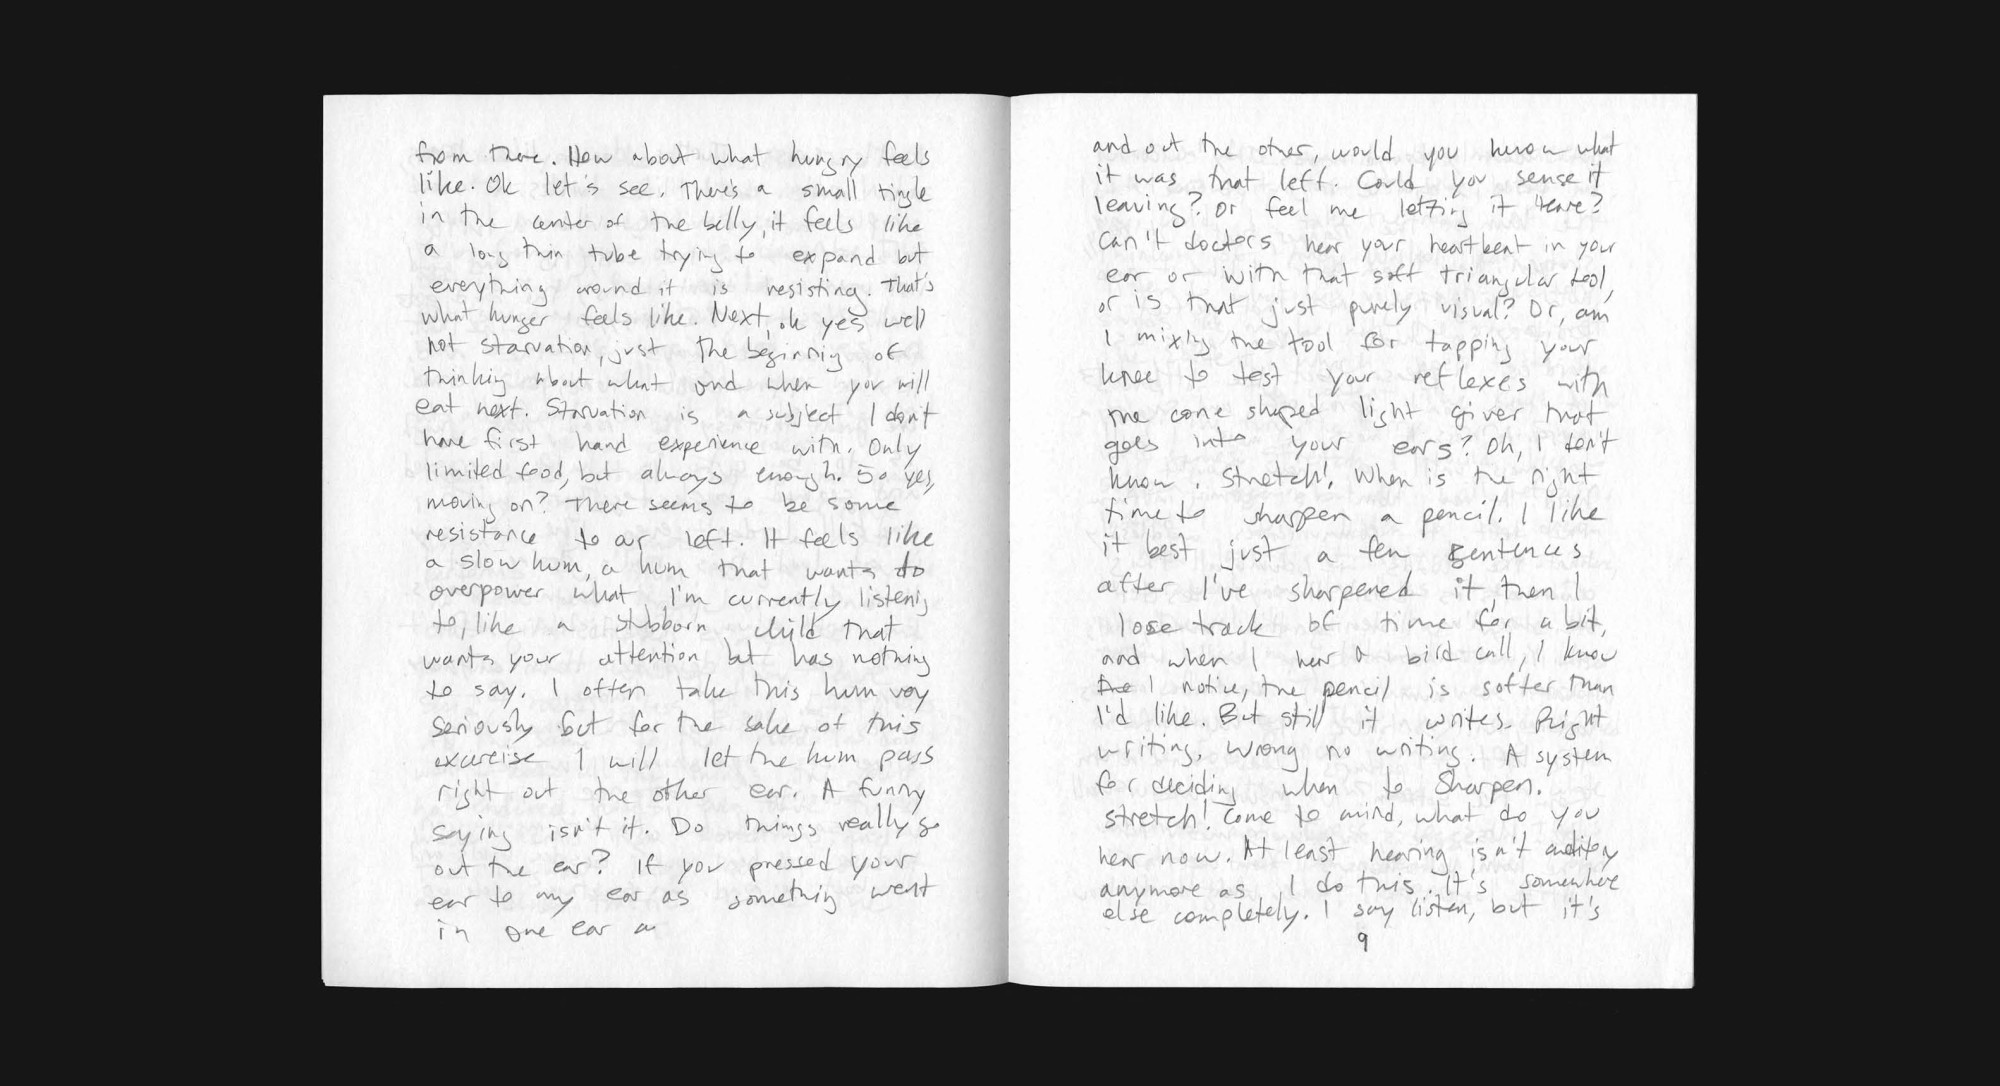 from there. How about what hungry feels
like. Ok let's see. There's a small tingle
in the center of the belly, it feels like
a long thin tube trying to expand but
everything around it is resisting. That's
what hunger feels like. Next, ok yes well
not starvation, just the beginning of
thinking about what and when you will
eat next. Starvation is a subject I don't
have first hand experience with. Only
limited food, but always enough. So yes,
moving on? There seems to be some
resistance to our left. It feels like
a slow hum, a hum that wants to
overpower what I'm currently listening
to, like a stubborn child that
wants your attention but has nothing
to say. I often take this hum very
seriously but for the sake of this
exercise I will let the hum pass
right out the other ear. A funny
saying isn't it. Do things really go
out the ear? If you pressed your
ear to my ear as something went
in one ear a
and out the other, would you know what
it was that left. Could you sense it
leaving? Or feel me letting it leave?
Can't doctors hear your heartbeat in your
ear or with that soft triangular tool,
or is that just purely visual? Or, am
I mixing the tool for tapping your
knee to test your reflexes with
the cone shaped light giver that
goes into your ears? Oh, I don't
know. Stretch! When is the right
time to sharpen a pencil. I like
it best just a few sentences
after I've sharpened it, then I
lose track of time for a bit,
and when I hear a bird call, I know
the I notice, the pencil is softer than
I'd like. But still it writes. Right
writing, wrong no writing. A system
for deciding when to sharpen.
stretch! Come to mind, what do you
hear now. At least hearing isn't auditory
anymore as I do this. It's somewhere
else completely. I say listen, but it's
9